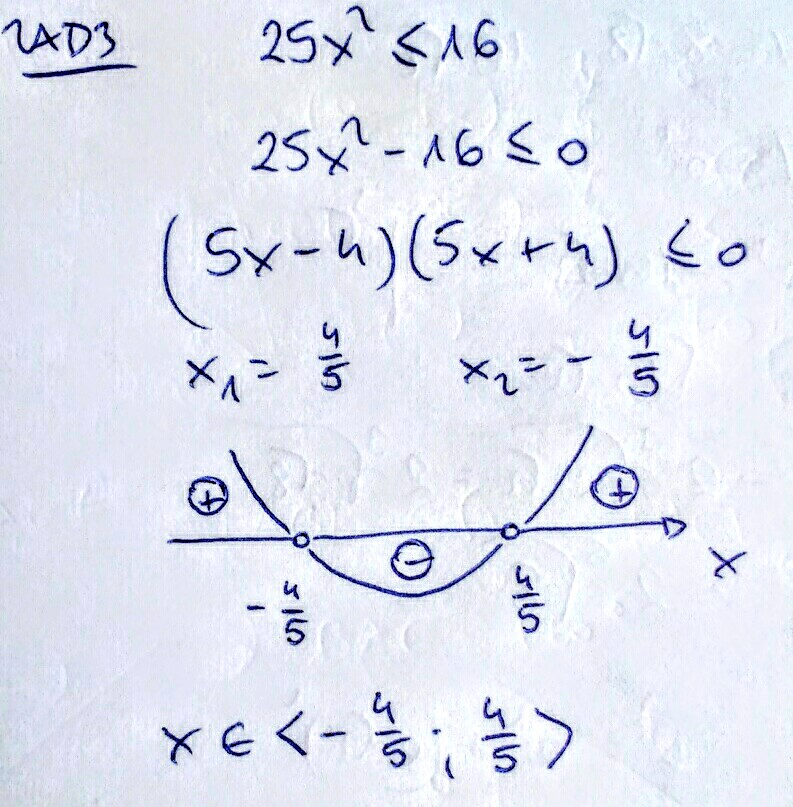 ZAD3 25x² ≤ 16
25x² - 16 ≤ 0
(5x-4)(5x+4) ≤ 0
x₁ = 4/5 x₂ = - 4/5
+ - +
- 4/5 4/5 x
x ∈ <- 4/5 ; 4/5 >